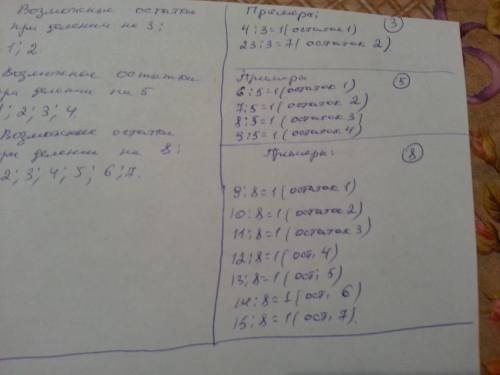 Возможные остатки
при делении на 3:
1; 2
Возможное остатки
при делении на 5
1; 2; 3; 4.
Возможные остатки
ри делении на 8:
2; 3; 4; 5; 6; 7.
Примеры: 3
4:3=1 (остаток 1)
23:3=7 (остаток 2)
Примеры 5
6:5=1 (остаток 1)
7:5=1 (остаток 2)
8:5=1 (остаток 3)
9:5=1 (остаток 4)
Примеры: 8
9:8=1 (остаток 1)
10:8=1 (остаток 2)
11:8=1 (остаток 3)
12:8=1 (ост. 4)
13:8=1 (ост. 5)
14:8=1 (ост. 6)
15:8=1 (ост. 7).